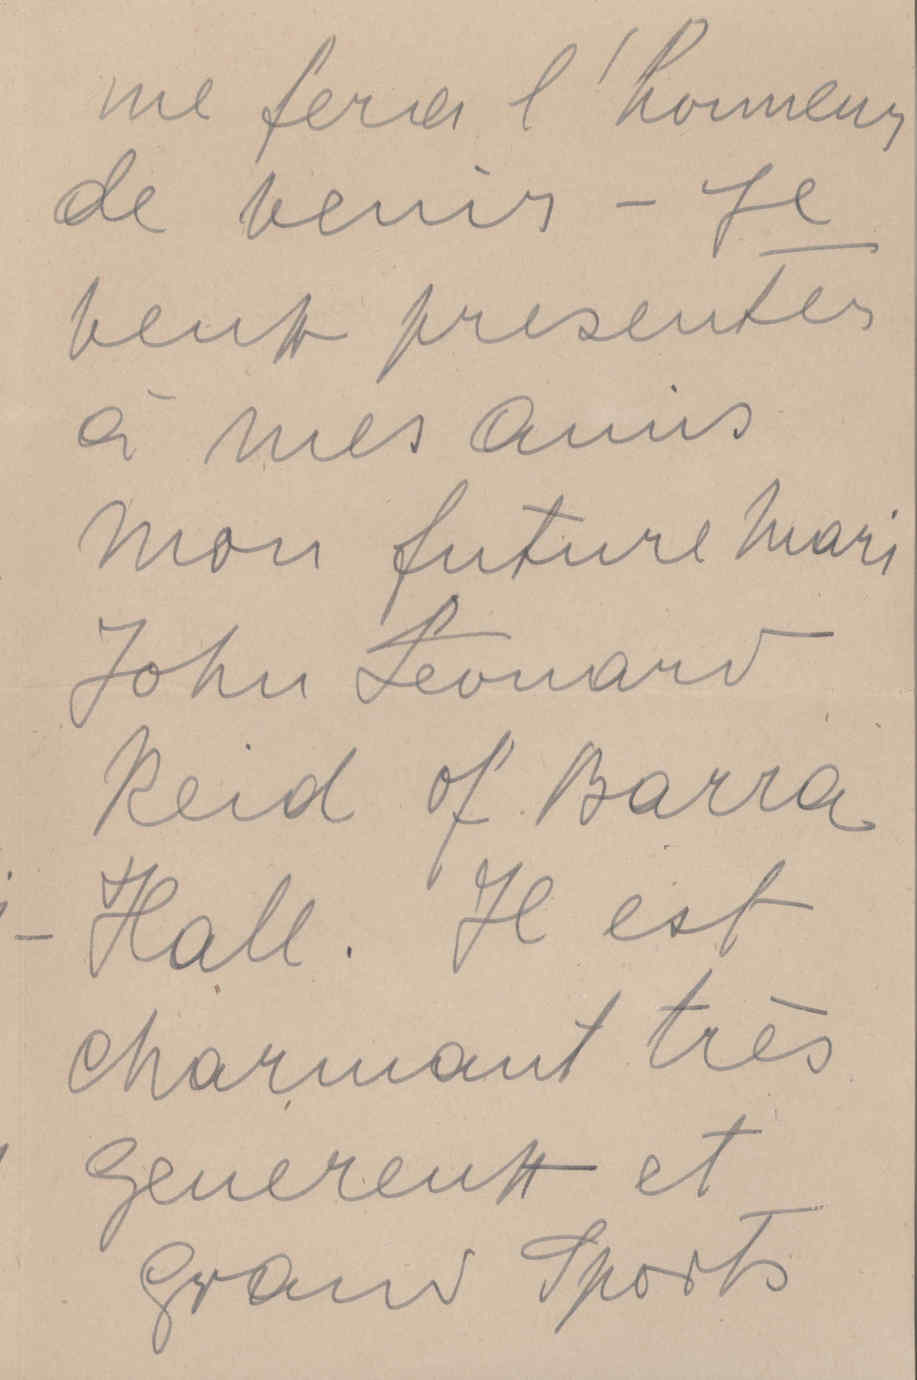 me fera l'honneur
de venir - Je
veux presenter
à mes amis
mon future mari
John Leonard
Reid of Barra
Hall. Il est
charmant très
genereux et
grand Sports